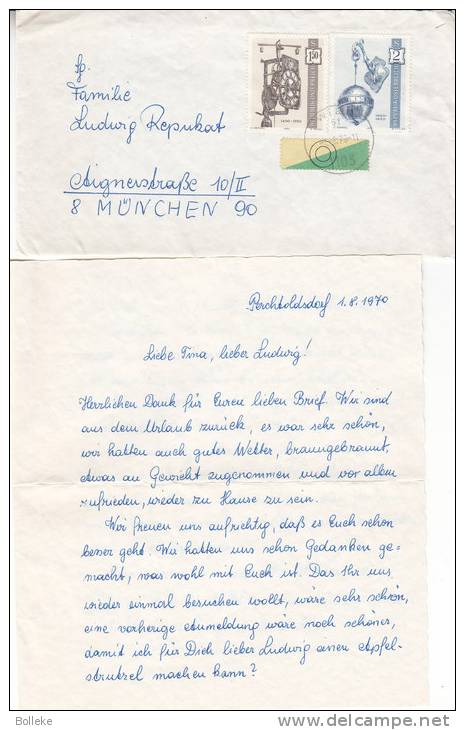 Fa.
Familie
Ludwig Repukat
Aignerstraße 10/II
8 MÜNCHEN 90
1.50
REPUBLIK ÖSTERREICH
1400-1550
S2
REPUBLIK ÖSTERREICH
Perchtoldsdorf 1.8.1970
Liebe Tina, lieber Ludwig!
Herzlichen Dank für Euren lieben Brief. Wir sind
aus dem Urlaub zurück, es war sehr schön,
wir hatten auch gutes Wetter, braungebrannt,
etwas an Gewicht zugenommen und vor allem
zufrieden, wieder zu Hause zu sein.
Wir freuen uns aufrichtig, daß es Euch schon
besser geht. Wir hatten uns schon Gedanken ge-
macht, was wohl mit Euch ist. Das Ihr uns
wieder einmal besuchen wollt, wäre sehr schön,
eine vorherige Anmeldung wäre noch schöner,
damit ich für Dich lieber Ludwig einen Apfel-
strutzel machen kann?
Bolleke
www.delcampe.net